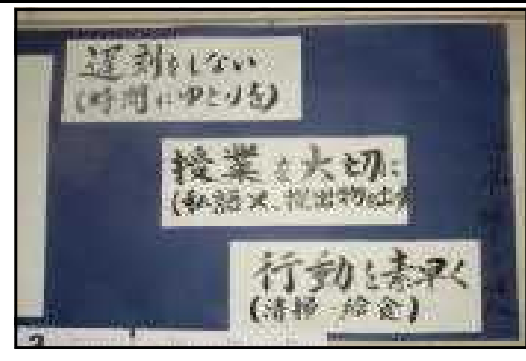 遅刻をしない
(時間にゆとりを)
授業を大切に
(私語×、提出物は
行動を素早く
(清掃・給食)